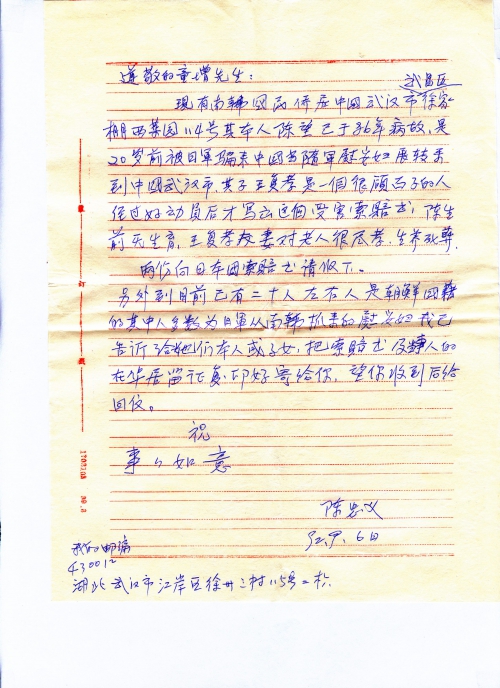 尊敬的童增先生:
武昌区
现有南韩国民侨居中国武汉市徐家
棚西菜园114号其本人陈 已于86年病故,是
20岁前被日军骗来中国当随军慰安妇展转来
到中国武汉市,其子王复孝是一个很顾面子的人
经过好动员后才写出这个受害索赔书,陈生
前无生育,王复孝夫妻对老人很厚孝,生养死葬.
两份向日本国索赔书请收下。
另外到目前已有二十人左右人是朝鲜国籍
的其中人多数为日军从南韩抓来的慰安妇我已
告诉了给她们本人或子女,把索赔书及 人的
在华居留证复印好寄给你,望你收到后给
回仪。
祝
事事如意
陈忠义
92.9.6日
我的邮编
430012
湖北武汉市江岸区徐州二村115号二栋